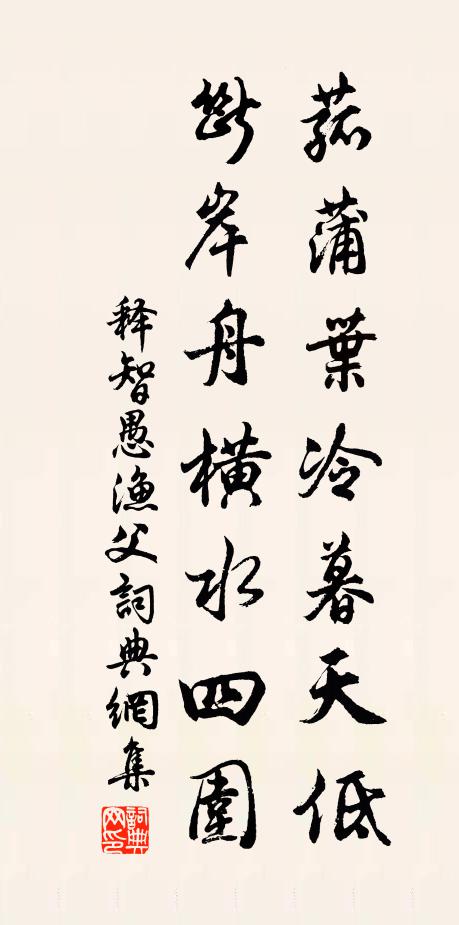 菰蒲葉冷暮天低
斷岸舟橫水四圍
释智愚漁父詞典網集
詞典網印